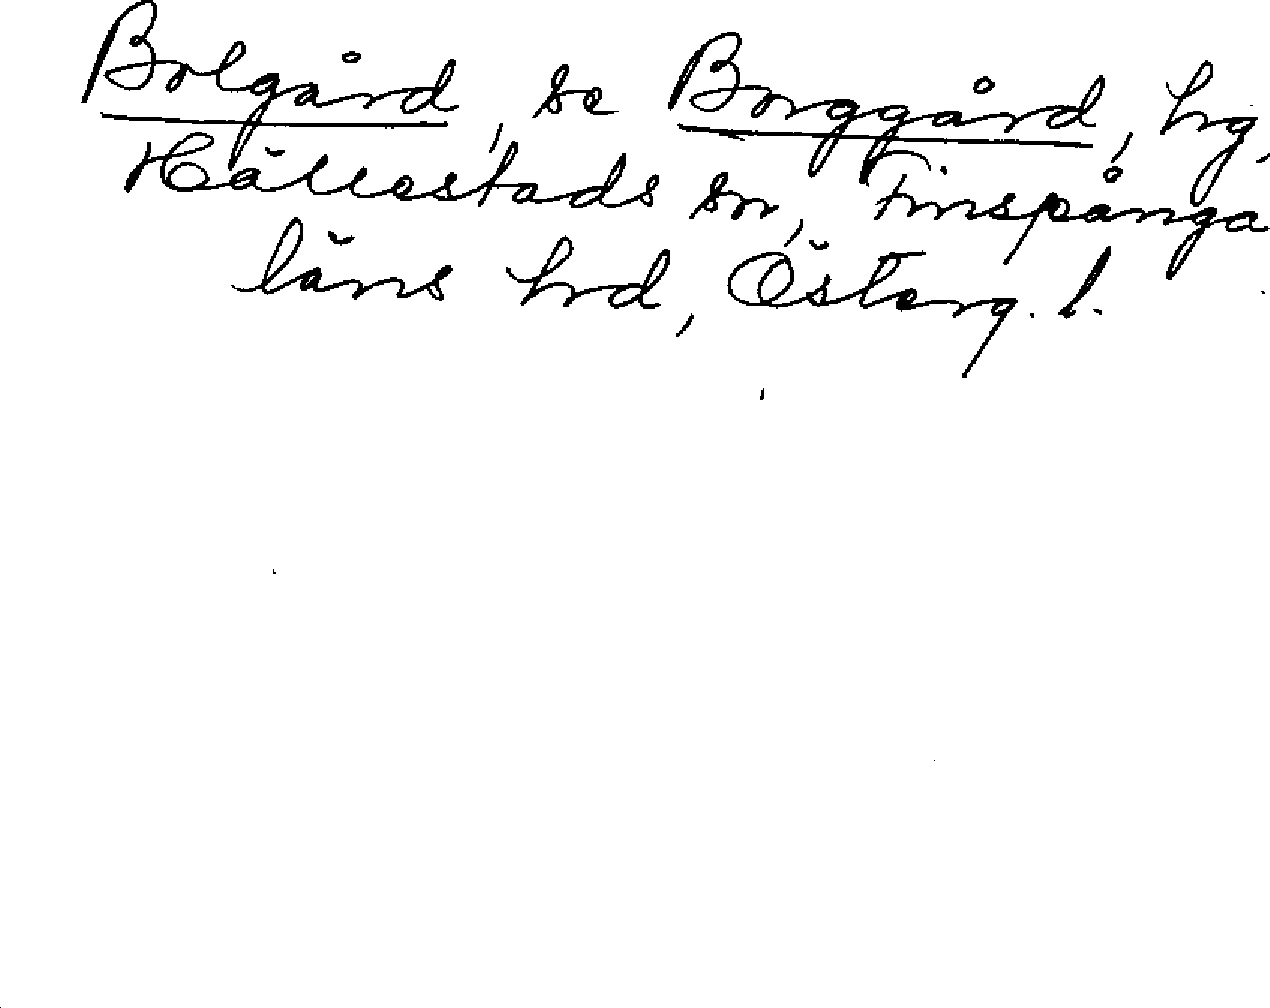 Bolgård, se Borggård, hg,
Hällestads sn, Finspånga
läns hrd, Österg. l.